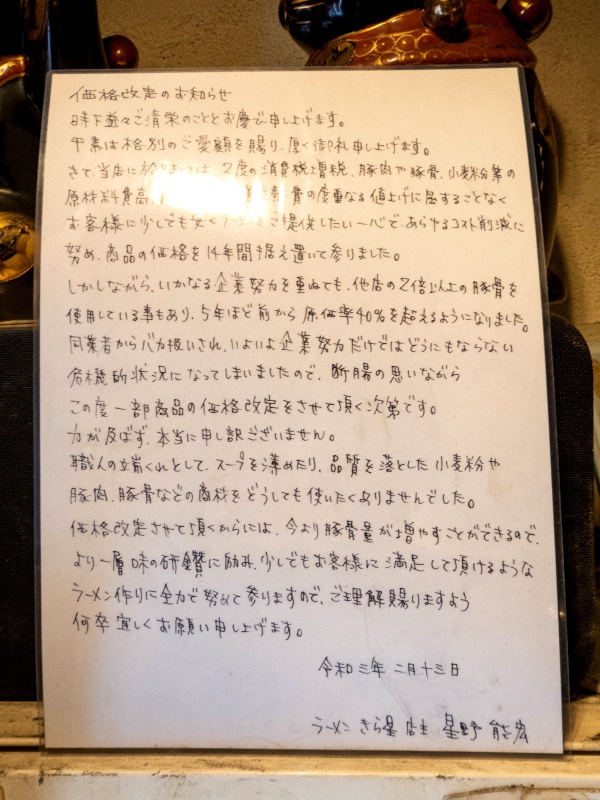 価格改定のお知らせ
時下益々ご清栄のこととお慶び申し上げます。
平素は格別のご愛顧を賜り、厚く御礼申し上げます。
さて、当店におきましては、2度の消費税増税、豚肉や豚骨、小麦粉等の
原材料費高 費の度重なる値上げに屈することなく
お客様に少しでも安くラーメンをご提供したい一心で、あらゆるコスト削減に
努め、商品の価格を14年間据え置いて参りました。
しかしながら、いかなる企業努力を重ねても、他店の2倍以上の豚骨を
使用している事もあり、5年ほど前から原価率40%を超えるようになりました。
同業者からバカ扱いされ、いよいよ企業努力だけではどうにもならない
危機的状況になってしまいましたので、断腸の思いながら
この度一部商品の価格改定をさせて頂く次第です。
力が及ばず、本当に申し訳ございません。
職人の端くれとして、スープを薄めたり、品質を落とした小麦粉や
豚肉、豚骨などの商材をどうしても使いたくありませんでした。
価格改定させて頂くからには、今より豚骨量が増やすことができるので、
より一層味の研鑽に励み、少しでもお客様に満足して頂けるような
ラーメン作りに全力で努めて参りますので、ご理解賜りますよう
何卒宜しくお願い申し上げます。
令和三年 二月十三日
ラーメン きら星 店主 星野 能宏